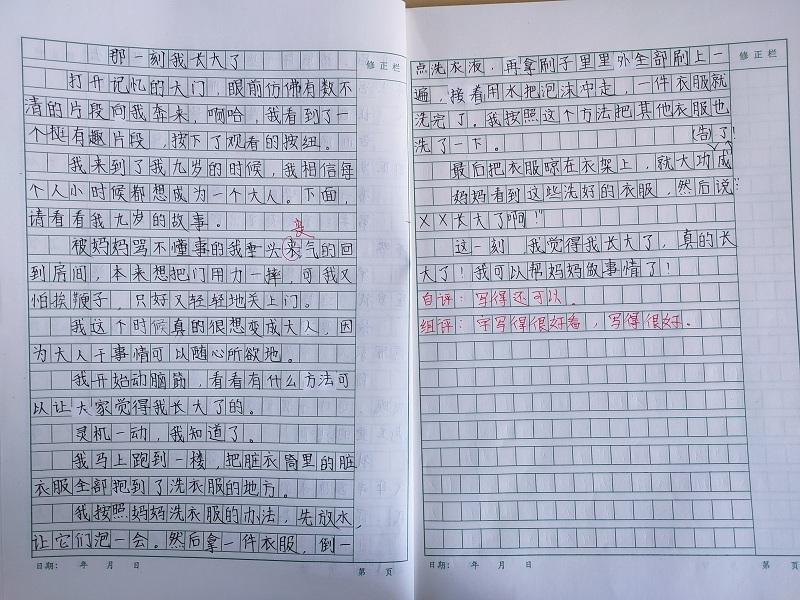 那一刻我长大了
修正栏
打开记忆的大门，眼前仿佛有数不
清的片段向我奔来，啊哈，我看到了一
个挺有趣片段，按下了观看的按纽。
我来到了我九岁的时候，我相信每
个人小时候都想成为一个大人。下面，
请看看我九岁的故事。
丧
被妈妈骂不懂事的我垂头来气的回
到房间，本来想把门用力一摔，可我又
怕挨鞭子，只好又轻轻地关上门。
我这个时候真的很想变成大人，因
为大人干事情可以随心所欲地。
我开始动脑筋，看看有什么方法可
以让大家觉得我长大了的。
灵机一动，我知道了。
我马上跑到一楼，把脏衣筒里的脏
衣服全部抱到了洗衣服的地方。
我按照妈妈洗衣服的办法，先放水，
让它们泡一会。然后拿一件衣服，倒一
日期： 年 月 日
第 页
修正栏
点洗衣液，再拿刷子里里外全部刷上一
遍，接着用水把泡沫冲走，一件衣服就
洗完了。我按照这个方法把其他衣服也
洗了一下。
告了！
最后把衣服晾在衣架上，就大功成
妈妈看到这些洗好的衣服，然后说：
XX长大了啊！”
这一刻，我觉得我长大了，真的长
大了！我可以帮妈妈做事情了！
自评：写得还可以。
组评：字写得很好看，写得很好。
日期： 年 月 日
第 页